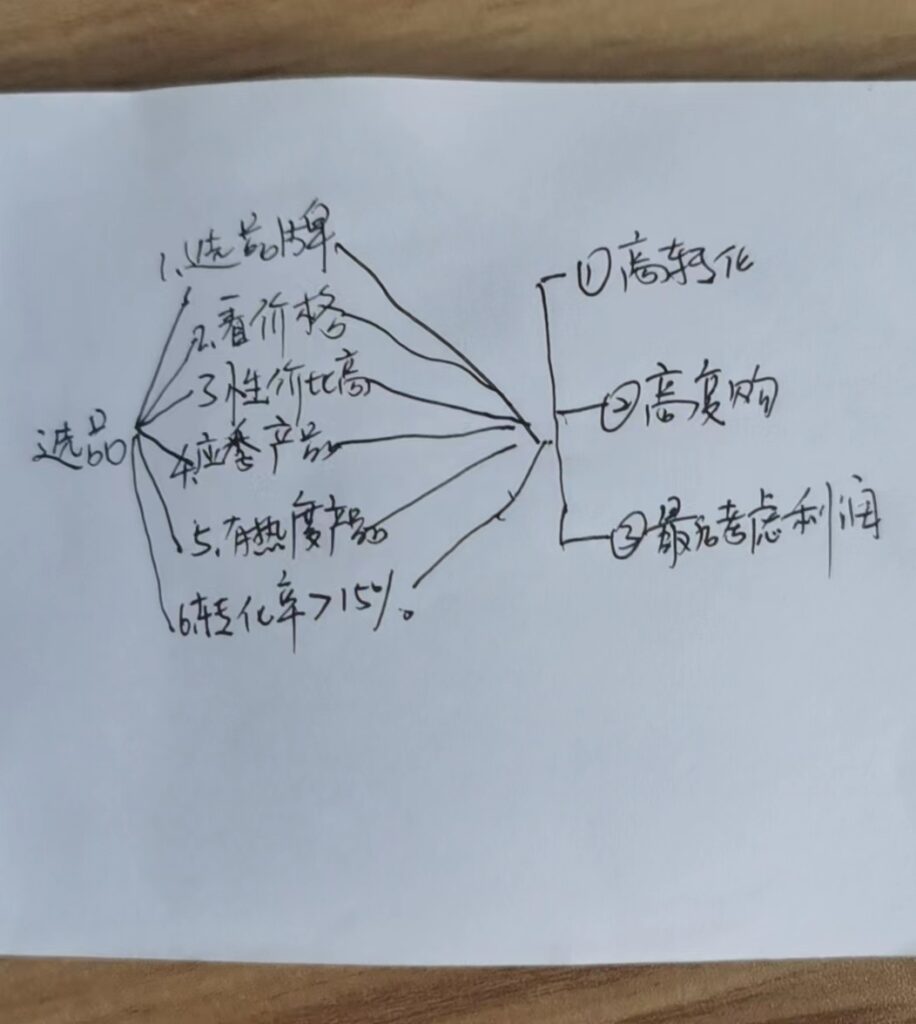 选品
1.选品牌
2.看价格
3性价比高
4.应季产品
5.有热度产品
6.转化率>15%。
①高转化
②高复购
③最后考虑利润